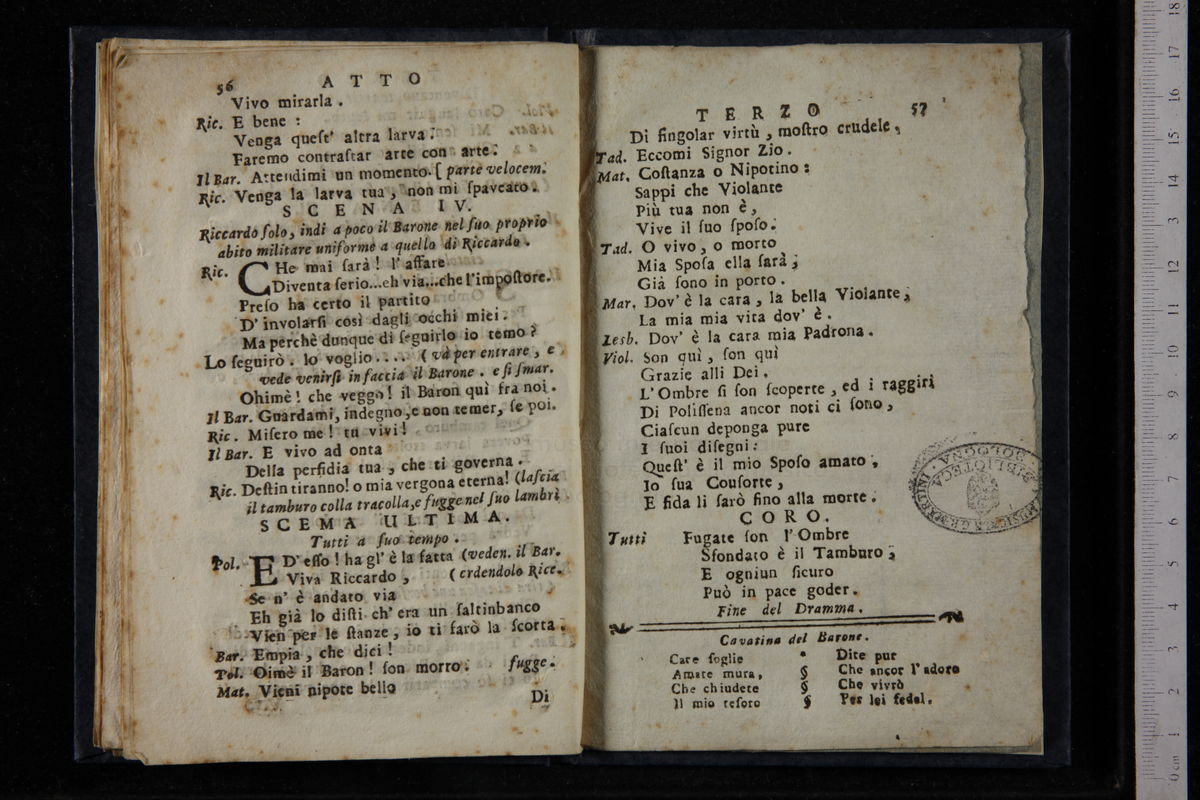 56 ATTO
Vivo mirarla.
Ric. E bene:
Venga queſt' altra larva.
Faremo contraſtar arte con arte.
Il Bar. Attendimi un momento. [parte velocem.
Ric. Venga la larva tua, non mi ſpavento.
SCENA IV.
Riccardo ſolo, indi a poco il Barone nel ſuo proprio
abito militare uniforme a quello di Riccardo.
Ric. CHe mai ſarà! l'affare
Diventa ſerio...eh via...che l'impoſtore.
Preſo ha certo il partito
D' involarſi così dagli occhi miei.
Ma perchè dunque di ſeguirlo io temo?
Lo ſeguirò. Io voglio.... (và per entrare, e
vede venirſi in faccia il Barone. e ſi ſmar.
Ohimè! che veggo! il Baron quì fra noi.
Il Bar. Guardami, indegno, e non temer, ſe poi.
Ric. Miſero me! tu vivi!
Il Bar. E vivo ad onta
Della perfidia tua, che ti governa.
Ric. Deſtin tiranno! o mia vergona eterna! (laſcia
il tamburo colla tracolla, e fugge nel ſuo lambrì.
SCEMA ULTIMA.
Tutti a ſuo tempo.
Pol. ED' eſſo! ha gl' è la fatta (veden. il Bar.
Viva Riccardo, (crdendolo Ricc.
Se n' è andato via
Eh già lo diſti ch' era un ſaltinbanco
Vien per le ſtanze, io ti farò la ſcorta.
Bar. Empia, che dici!
Pol. Oimè il Baron! ſon morto. fugge.
Mat. Vieni nipote bello
Di
TERZO 57
Di ſingolar virtù, moſtro crudele,
Tad. Eccomi Signor Zio.
Mat. Coſtanza o Nipotino:
Sappi che Violante
Più tua non è,
Vive il ſuo ſpoſo.
Tad. O vivo, o morto
Mia Spoſa ella ſarà;
Già ſono in porto.
Mar. Dov' è la cara, la bella Violante,
La mia mia vita dov' è.
Lesb. Dov' è la cara mia Padrona.
Viol. Son quì, ſon quì
Grazie alli Dei.
L'Ombre ſi ſon ſcoperte, ed i raggiri
Di Poliſſena ancor noti ci ſono,
Ciaſcun deponga pure
I ſuoi diſegni:
Queſt' è il mio Spoſo amato,
Io ſua Couſorte,
E fida li ſarò fino alla morte.
CORO.
Tutti Fugate ſon l'Ombre
Sfondato è il Tamburo;
E ogniun ſicuro
Può in pace goder.
Fine del Dramma.
Cavatina del Barone.
Care ſoglie * Dite pur
Amate mura, § Che ancor l'adoro
Che chiudete § Che vivrò
Il mio teſoro § Per lei fedel.